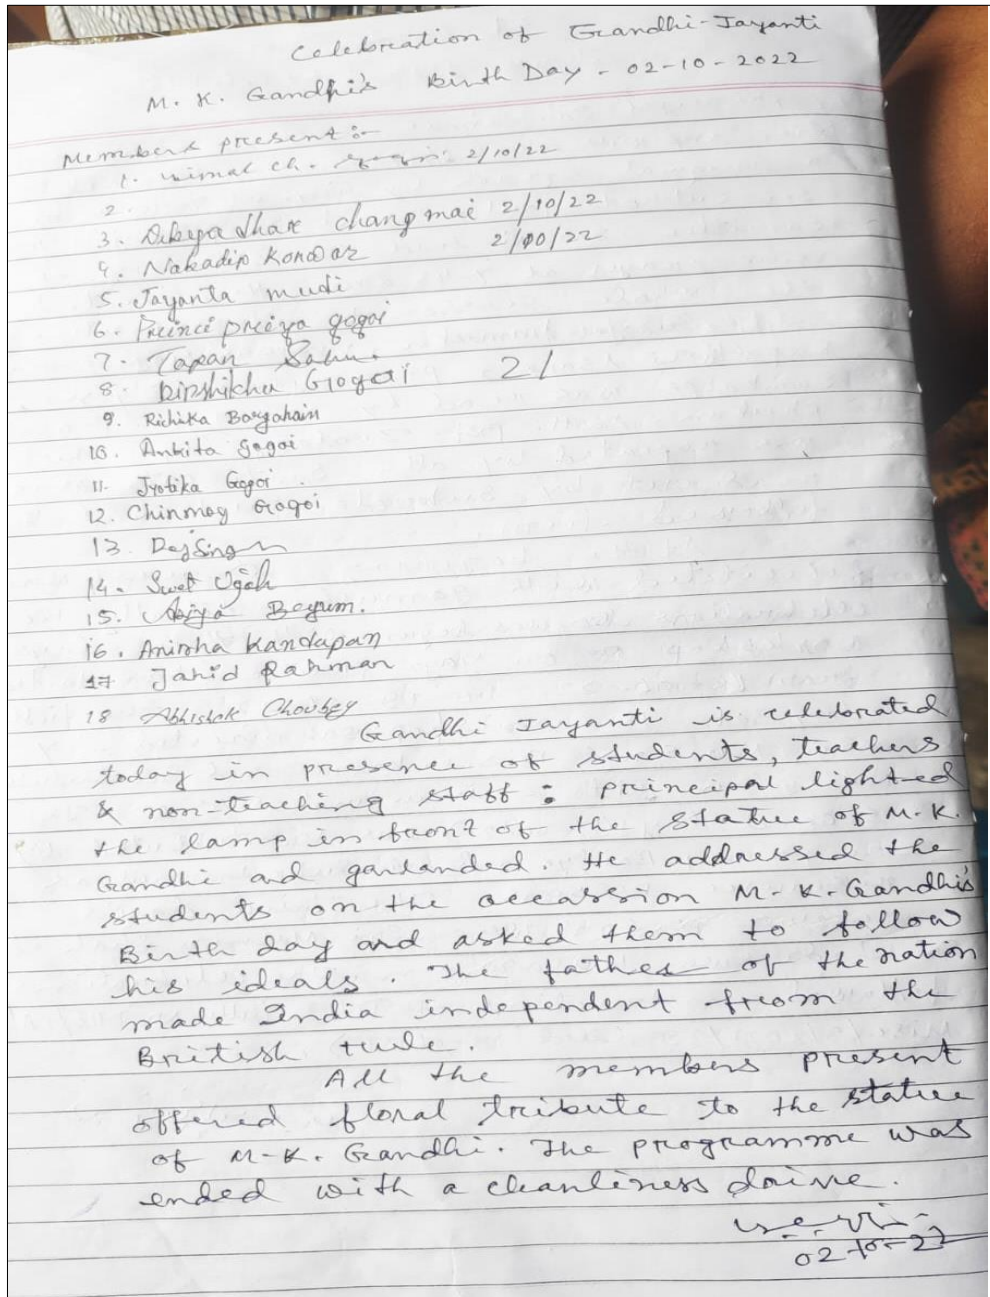 Celebration of Gandhi-Jayanti
M. K. Gandhi's Birth Day - 02-10-2022
Members present :-
1. Bimal ch. 2/10/22
2.
3. Dibyadhar changmai 2/10/22
4. Nabadip Konwar 2/10/22
5. Jayanta mudi
6. Princi priya gogoi
7. Tapan Sahu.
8. Dipshikha Gogoi 2/
9. Richika Borgohain
10. Ankita gogoi
11. Jyotika Gogoi
12. Chinmoy Gogoi
13. Singh
14. Swet
15. Begum.
16. Anisha Kandapan
17 Jahid Rahman
18 Abhishek Choubey
Gandhi Jayanti is celebrated
today in presence of students, teachers
& non-teaching staff : principal lighted
the lamp in front of the statue of M.K.
Gandhi and garlanded. He addressed the
students on the occassion M.K. Gandhi's
Birth day and asked them to follow
his ideals. The father of the nation
made India independent from the
British rule.
All the members present
offered floral tribute to the statue
of M.K. Gandhi. The programme was
ended with a cleanliness drive.
02-10-22